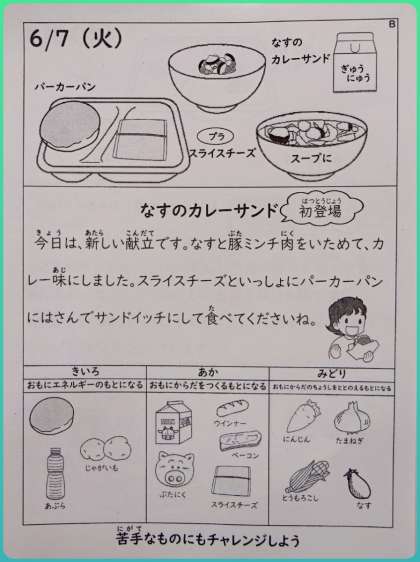 B
6/7（火）
なすの
カレーサンド
ぎゅう
にゅう
パーカーパン
プラ
スライスチーズ
スープに
なすのカレーサンド
はつとうじょう
初登場
きょう あたら こんだて ぶた にく
今日は、新しい献立です。なすと豚ミンチ肉をいためて、カ
あじ
レー味にしました。スライスチーズといっしょにパーカーパン
た
にはさんでサンドイッチにして食べてくださいね。
きいろ あか みどり
おもにエネルギーのもとになる おもにからだをつくるもとになる おもにからだのちょうしをととのえるもとになる
ウインナー
にんじん たまねぎ
じゃがいも
ベーコン
ぶたにく
あぶら スライスチーズ とうもろこし なす
にがて
苦手なものにもチャレンジしよう